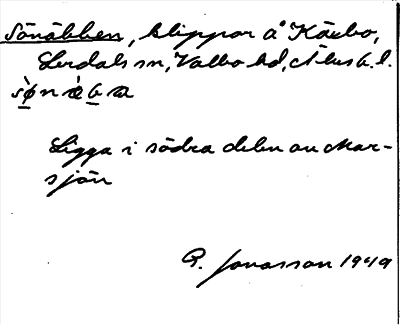 Sönäbben, klippor å Kärbo,
Lerdals sn, Valbo hd, Älvsb. l.
Ligga i södra delen av Mar-
sjön
R. Jonasson 1949